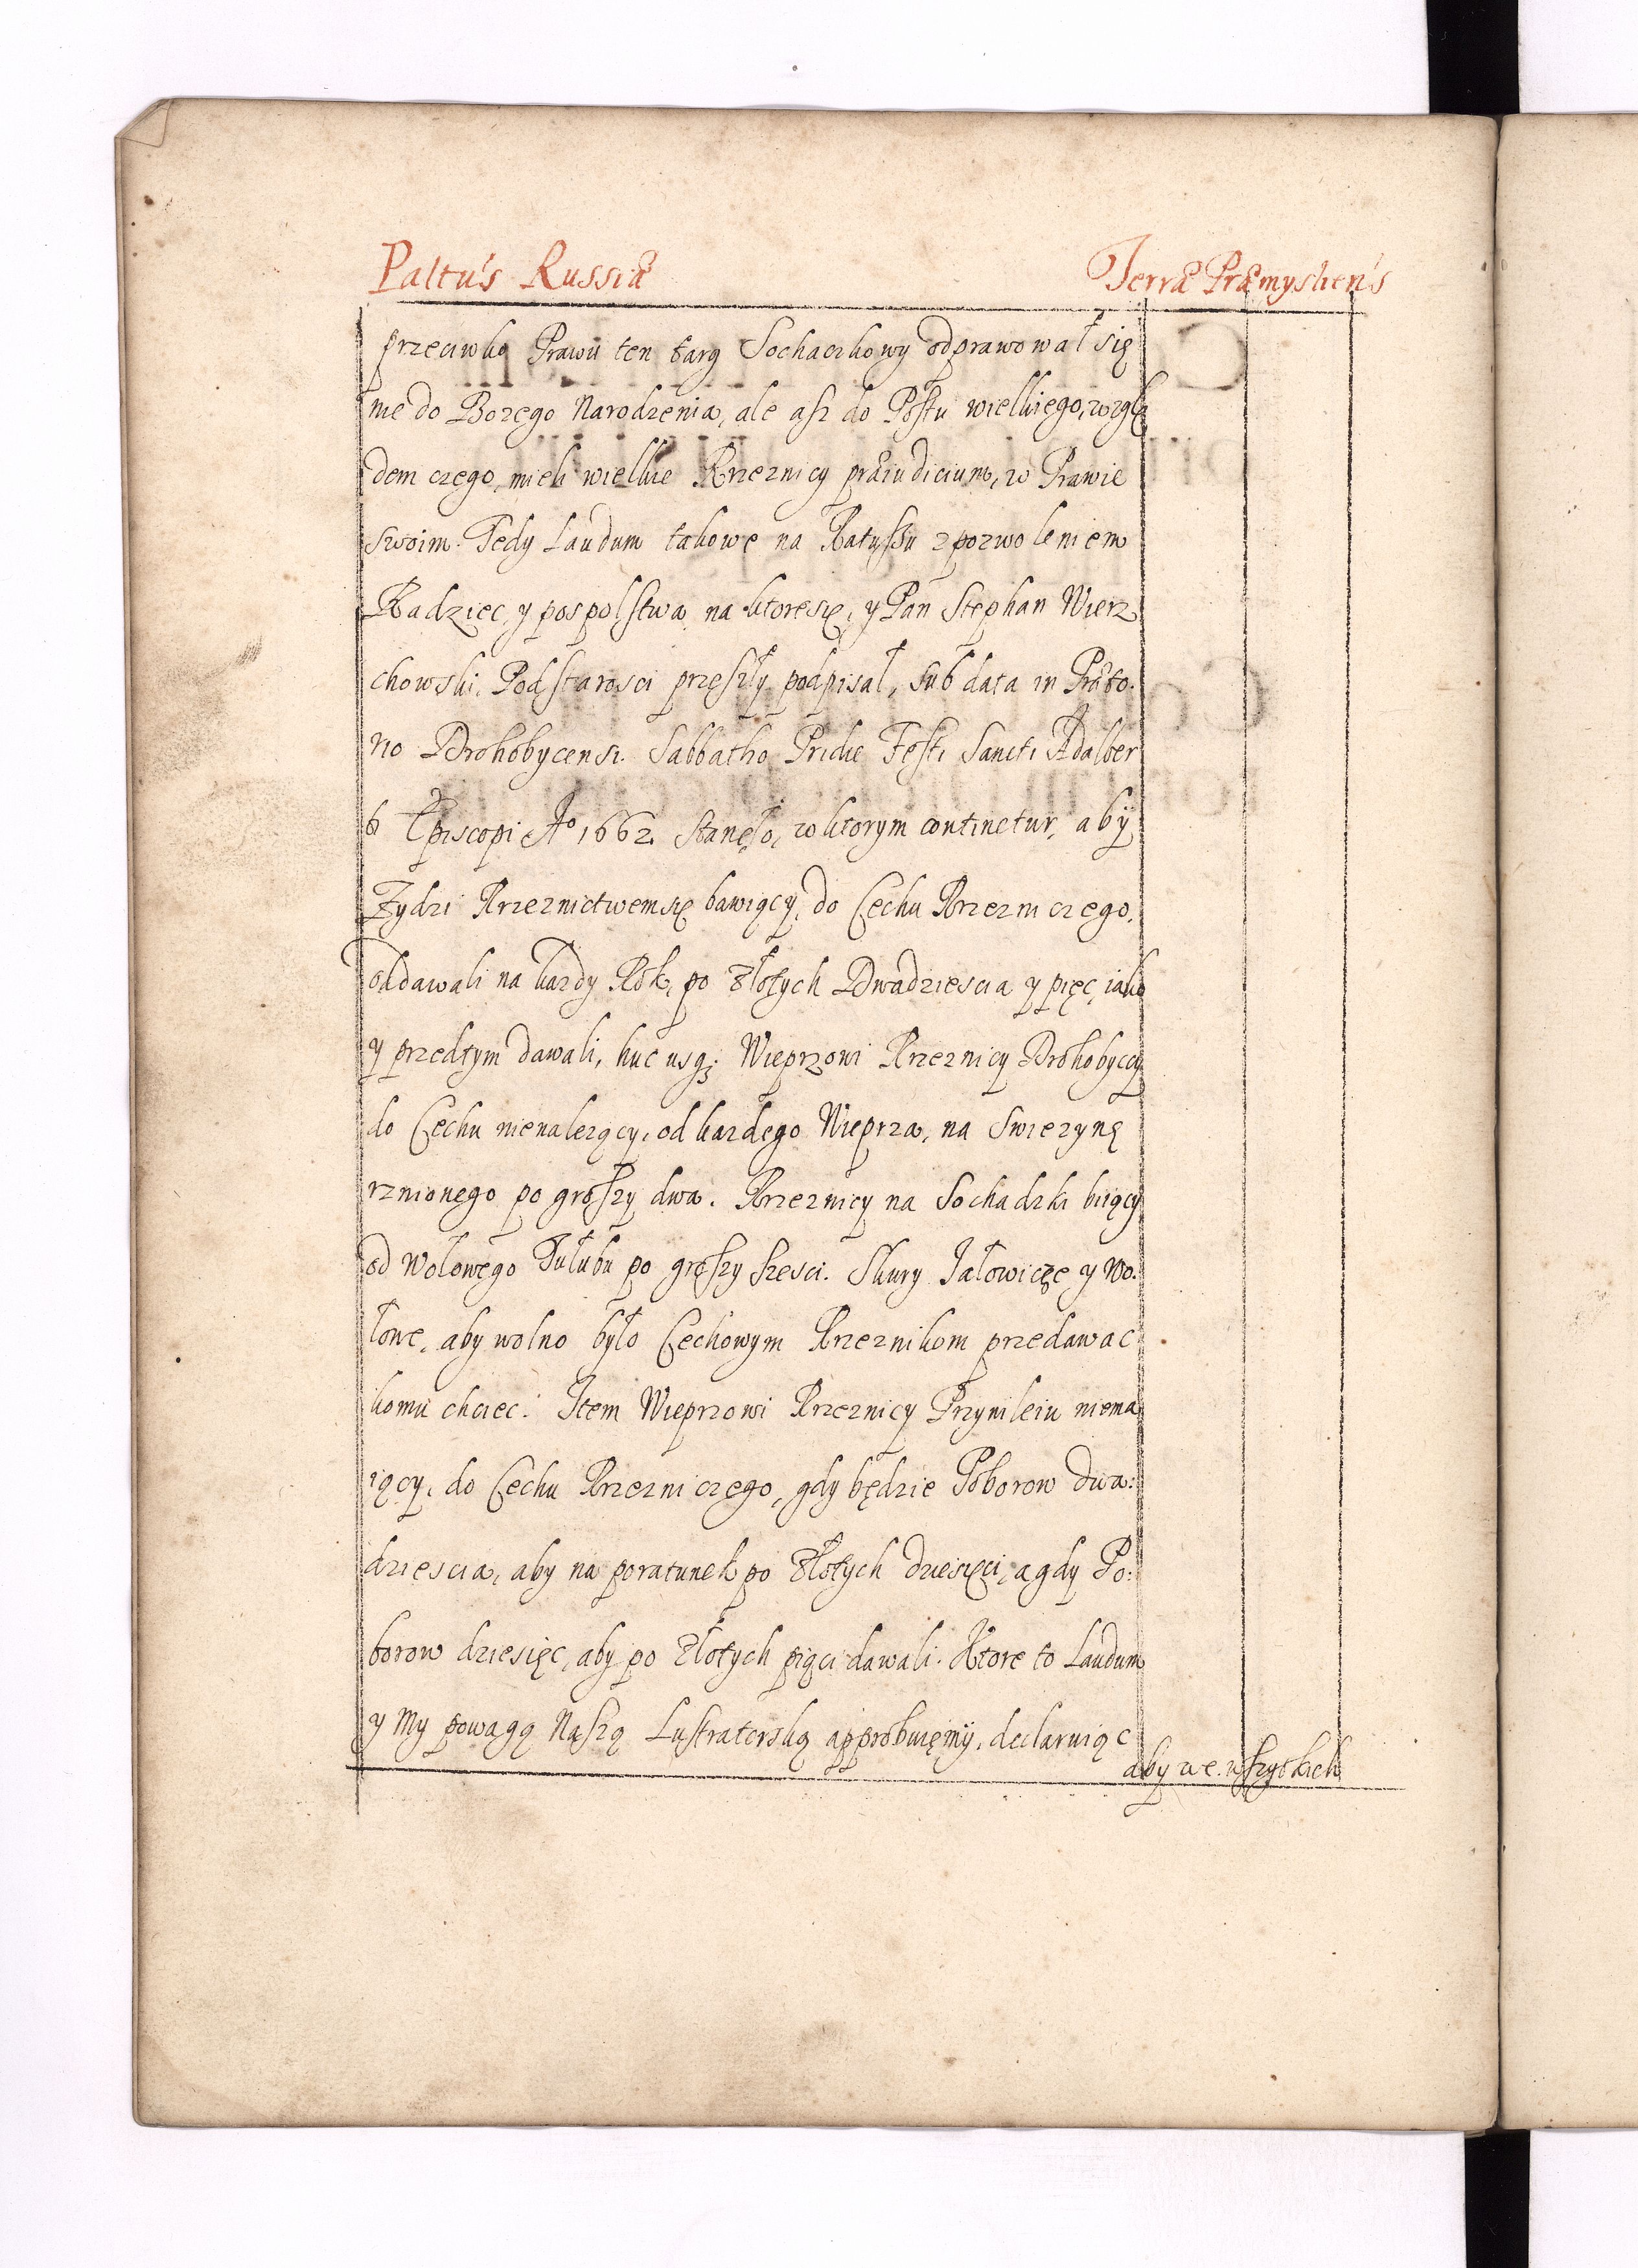 Paltu's Russiæ
Terræ Præmyslien's
przeciwko Prawu ten targ Sochaczkowy odprawował się
nie do Bozego Narodzenia, ale asz do Postu wielkiego, wzglę
dem czego, mieli wielkie Rzeznicy præiudicium, w Prawie
swoim. Tedy Laudum takowe na Ratuszu z pozwoleniem
Radziec, y pospolstwa, na ktoresię, y Pan Stephan Wierz
chowski, Podstarosci przeszły podpisał, sub data in Præto.
rio Drohobycensi. Sabbatho Pridie Festi Sancti Adalber
ti Episcopi Ao 1662. Stanęło, w ktorym continetur, aby
Zydzi Rzeznictwemsię bawiący, do Cechu Rzezniczego,
oddawali na kazdy Rok, po złotych Dwadziescia y pięc, iako
y przedtym dawali, huc usq; Wieprzowi Rzeznicy Drohobyccy
do Cechu nienalezący, od kazdego Wieprza, na Swiezynę
rznionego po groszy dwa. Rzeznicy na Sochadzki biiący
od Wołowego Tułubu po groszy szesci. Skury Jałowicze y Wo.
łowe, aby wolno było Cechowym Rzeznikom przedawac
komu chciec. Item Wieprzowi Rzeznicy Przywileiu niema
iący, do Cechu Rzezniczego, gdy będzie Poborow dwa:
dziescia, aby na poratunek po złotych dziesięci, a gdy Po:
borow dziesięc, aby po złotych pięci dawali. Ktore to Laudum
y My powagą Naszą Lustratorską approbuięmy, declaruiąc
aby we wszytkich